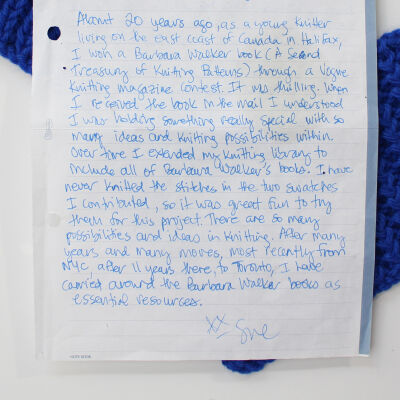 About 20 years ago, as a young knitter
living on the east coast of Canada in Halifax,
I won a Barbara Walker book (A Second
Treasury of Knitting Patterns) through a Vogue
Knitting magazine contest. It was thrilling. When
I received the book in the mail I understood
I was holding something really special with so
many ideas and knitting possibilities within.
Over time I extended my knitting library to
include all of Barbara Walker's books. I have
never knitted the stitches in the two swatches
I contributed, so it was great fun to try
them for this project. There are so many
possibilities and ideas in knitting. After many
years and many moves, most recently from
NYC, after 11 years there, to Toronto, I have
carried around the Barbara Walker books as
essential resources.
XX Sue